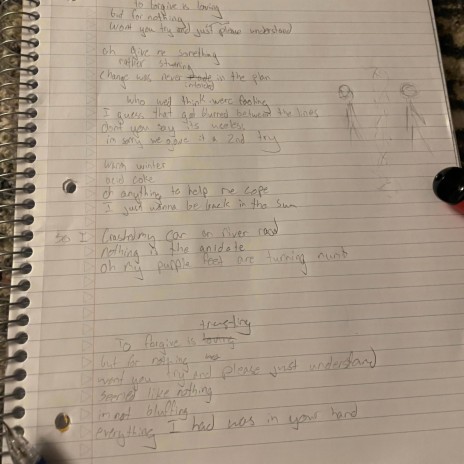 To forgive is loving
but for nothing
wont you try and just please understand
oh give me something
rather
Change was never in the plan
intended
Who well think were fooling
I guess that got blurred between the lines
dont you say its
im sorry we gave it a 2nd try
winter
coke
or anything to help me cope
I just wanna be back in the sun
so I Crashed my car on river road
nothing is the anidate
oh my purple feet are turning numb
trusting
To forgive is loving
but for nothing
wont you try and please just understand
seemed like nothing
im not bluffing
everything I had was in your hand